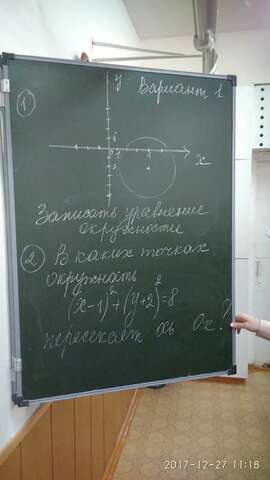 y Вариант 1
①
x
Записать уравнение
окружности
② В каких точках
окружность
(x-1)²+(y+2)²=8
пересекает ось Ox?
2017-12-27 11:18